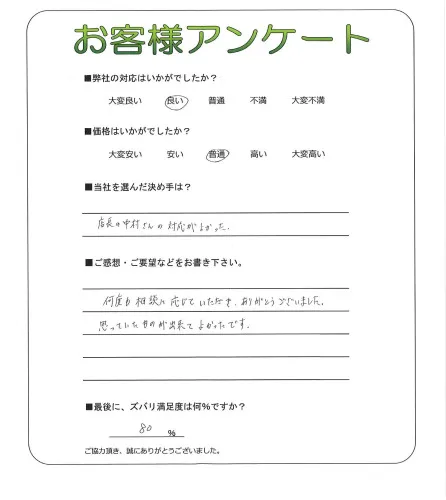 お客様アンケート
■弊社の対応はいかがでしたか？
大変良い 良い 普通 不満 大変不満
■価格はいかがでしたか？
大変安い 安い 普通 高い 大変高い
■当社を選んだ決め手は？
店長の中村さんの対応がよかった。
■ご感想・ご要望などをお書き下さい。
何度も相談に応じていただき、ありがとうございました。
思っていたものが出来てよかったです。
■最後に、ズバリ満足度は何%ですか？
80 %
ご協力頂き、誠にありがとうございました。